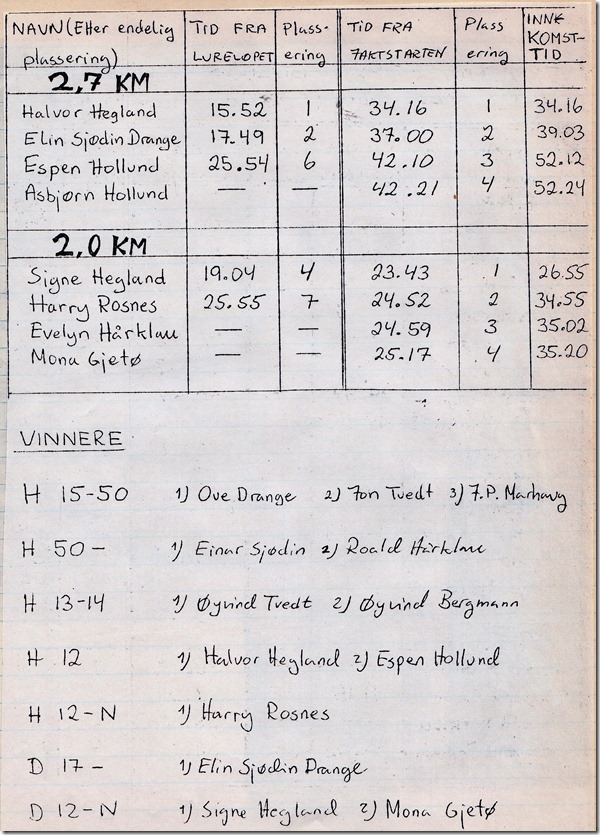 NAVN (Etter endelig plassering) TID FRA LURELØPET Plass-ering TID FRA JAKTSTARTEN Plass ering INNKOMST-TID
2,7 KM
Halvor Hegland 15.52 1 34.16 1 34.16
Elin Sjødin Drange 17.49 2 37.00 2 39.03
Espen Hollund 25.54 6 42.10 3 52.12
Asbjørn Hollund — — 42.21 4 52.24
2,0 KM
Signe Hegland 19.04 4 23.43 1 26.55
Harry Rosnes 25.55 7 24.52 2 34.55
Evelyn Hårklau — — 24.59 3 35.02
Mona Gjetø — — 25.17 4 35.20
VINNERE
H 15-50 1) Ove Drange 2) Jon Tvedt 3) J.P. Marhaug
H 50- 1) Einar Sjødin 2) Roald Hårklau
H 13-14 1) Øyvind Tvedt 2) Øyvind Bergmann
H 12 1) Halvor Hegland 2) Espen Hollund
H 12-N 1) Harry Rosnes
D 17- 1) Elin Sjødin Drange
D 12-N 1) Signe Hegland 2) Mona Gjetø